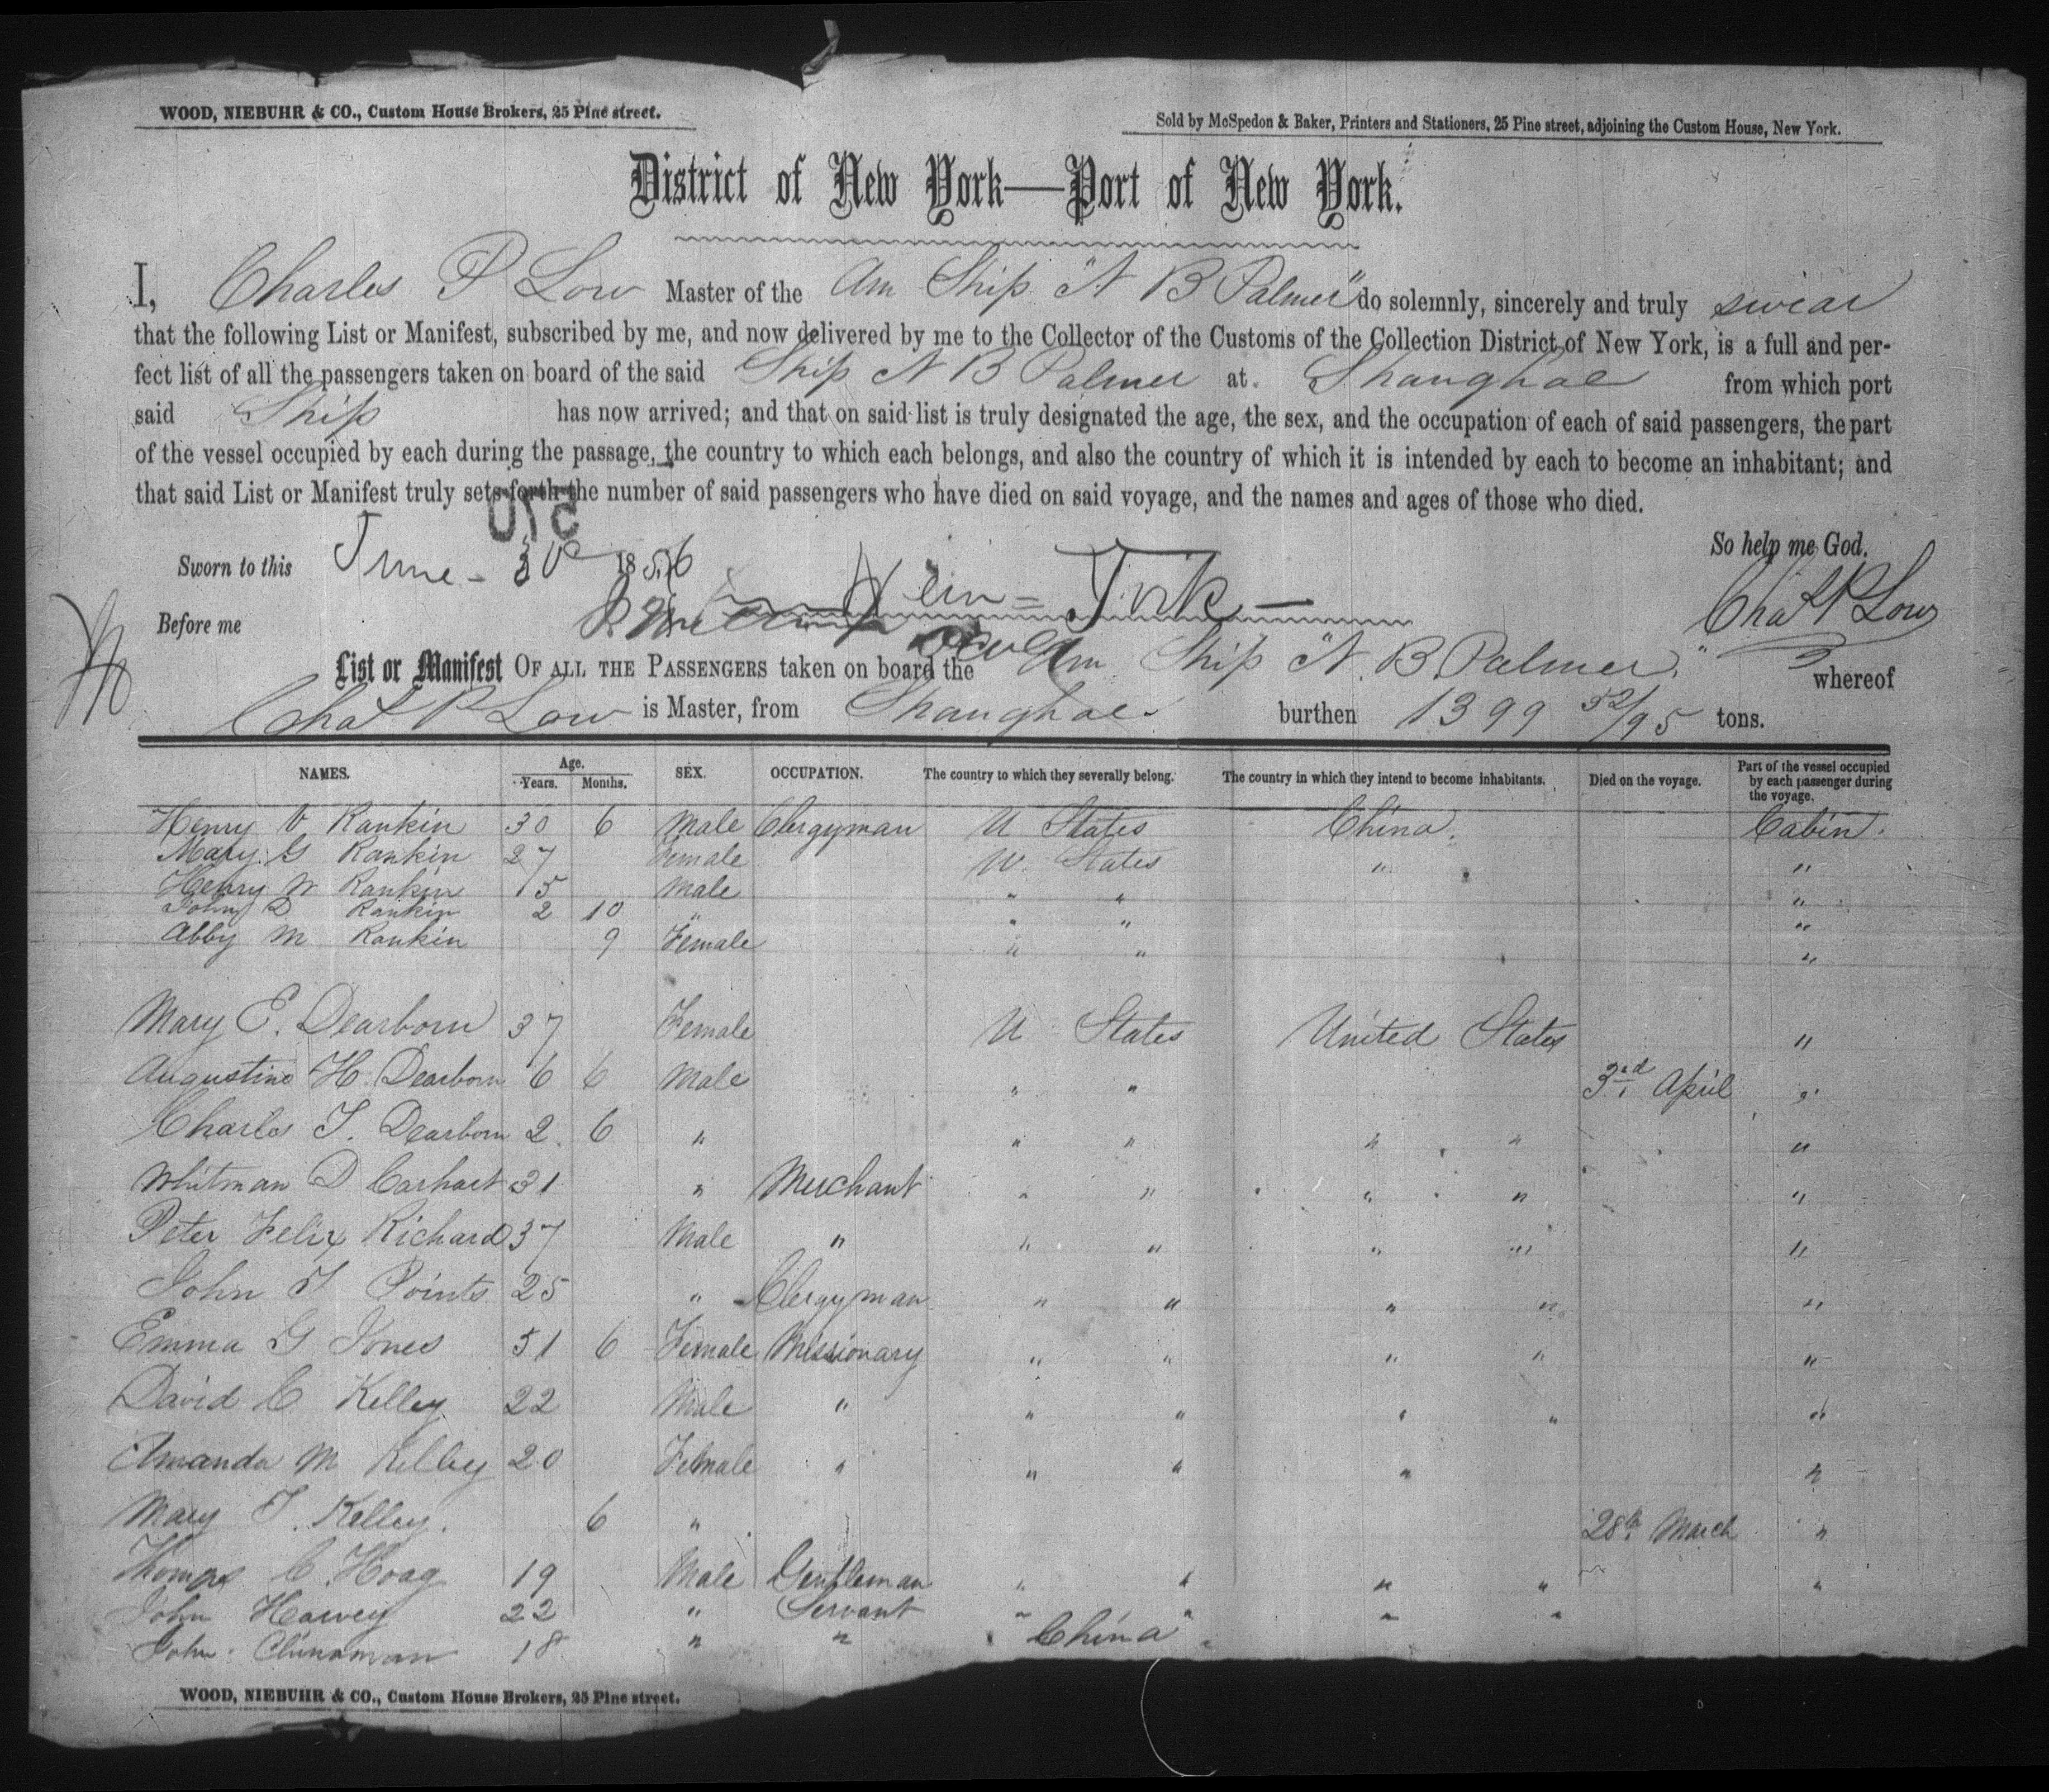 WOOD, NIEBUHR & CO., Custom House Brokers, 25 Pine street.
Sold by McSpedon & Baker, Printers and Stationers, 25 Pine street, adjoining the Custom House, New York.
District of New York—Port of New York.
I, Charles P Low Master of the Am Ship "N B Palmer" do solemnly, sincerely and truly swear
that the following List or Manifest, subscribed by me, and now delivered by me to the Collector of the Customs of the Collection District of New York, is a full and per-
fect list of all the passengers taken on board of the said Ship N B Palmer at Shanghae from which port
said Ship has now arrived; and that on said list is truly designated the age, the sex, and the occupation of each of said passengers, the part
of the vessel occupied by each during the passage, the country to which each belongs, and also the country of which it is intended by each to become an inhabitant; and
that said List or Manifest truly sets forth the number of said passengers who have died on said voyage, and the names and ages of those who died.
510
So help me God.
Sworn to this June 1856
Before me
Chas P Low
List or Manifest OF ALL THE PASSENGERS taken on board the Am Ship "N. B. Palmer" whereof
Chas P Low is Master, from Shanghae burthen 1399 32/95 tons.
NAMES. Age. Years. Months. SEX. OCCUPATION. The country to which they severally belong. The country in which they intend to become inhabitants. Died on the voyage. Part of the vessel occupied by each passenger during the voyage.
Henry V Rankin 30 6 Male Clergyman U States China. Cabin.
Mary G Rankin 27 Female U. States " "
Henry W Rankin 5 Male " " "
John D Rankin 2 10 " " " "
Abby M Rankin 9 Female " " "
Mary E. Dearborn 37 Female U States United States "
Augustine H. Dearborn 6 6 Male " " 3rd April "
Charles T. Dearborn 2. 6 " " " " " "
Whitman D Carhart 31 " Merchant " " " " "
Peter Felix Richard 37 Male " " " " " "
John T Points 25 " Clergyman " " " " "
Emma G Jones 31 6 Female Missionary " " " " "
David C Kelley 22 Male " " " " " "
Amanda M Kelley 20 Female " " " " "
Mary T. Kelley. 6 " 28th March "
Thomas C. Hoag 19 Male Gentleman " " " " "
John Harvey 22 " Servant " " " "
John Chinaman 18 " " China
WOOD, NIEBUHR & CO., Custom House Brokers, 25 Pine street.